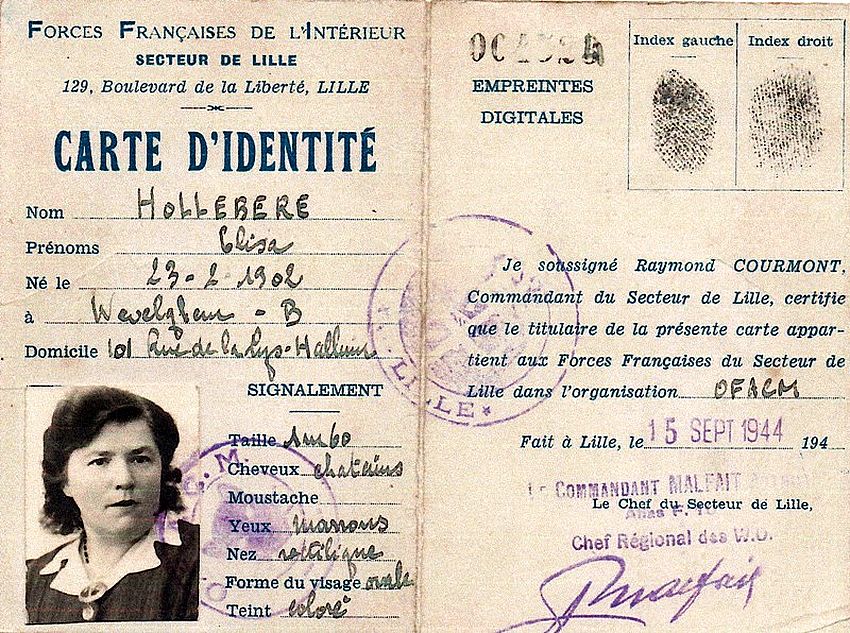 FORCES FRANÇAISES DE L'INTÉRIEUR
SECTEUR DE LILLE
129, Boulevard de la Liberté, LILLE
CARTE D'IDENTITÉ
Nom HOLLEBEKE
Prénoms Elisa
Né le 23-2-1902
à Wevelghem - B
Domicile 101 Rue de la Lys-Halluin
SIGNALEMENT
Taille 1m60
Cheveux chatains
Moustache
Yeux marrons
Nez rectiligne
Forme du visage ovale
Teint coloré
EMPREINTES
DIGITALES
Index gauche
Index droit
Je soussigné Raymond COURMONT,
Commandant du Secteur de Lille, certifie
que le titulaire de la présente carte appar-
tient aux Forces Françaises du Secteur de
Lille dans l'organisation OFACM
Fait à Lille, le 15 SEPT 1944 194
LE COMMANDANT MALFAIT
Le Chef du Secteur de Lille,
Chef Régional des W.O.
LILLE
G.M.